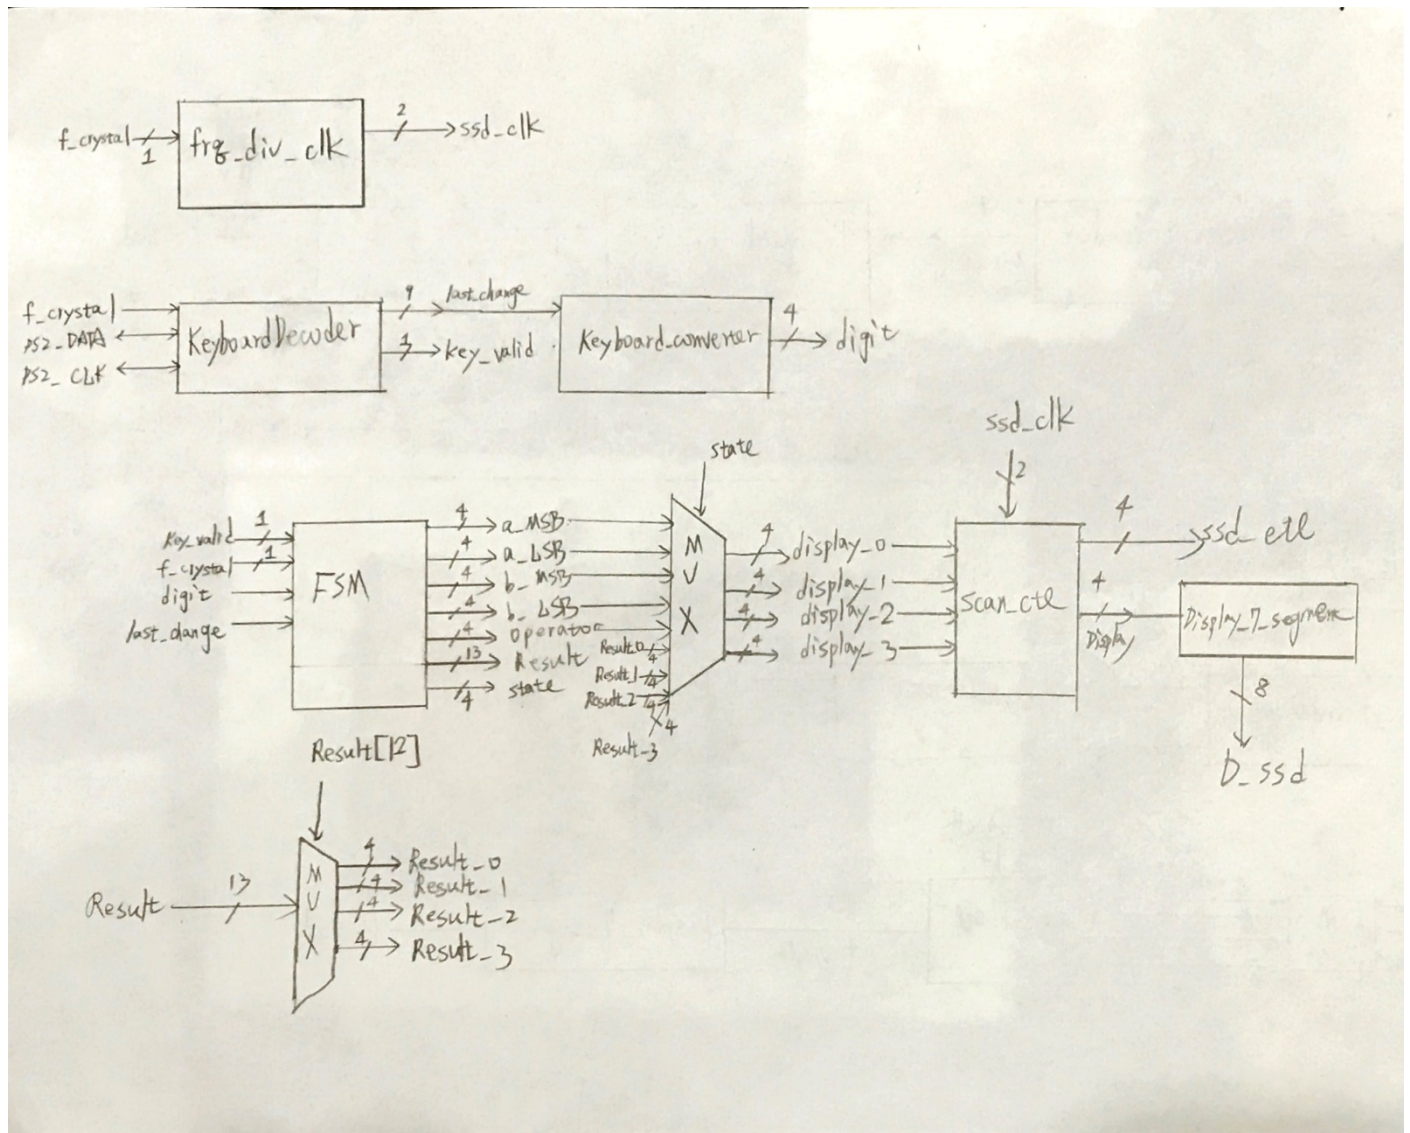 2
f_crystal
1
frq_div_clk
ssd_clk
f_crystal
PS2_DATA
PS2_CLK
KeyboardDecoder
9
last_change
1
key_valid
Keyboard_converter
4
digit
ssd_clk
2
state
key_valid
1
f_crystal
1
digit
last_change
FSM
4
a_MSB
4
a_LSB
4
b_MSB
4
b_LSB
4
operator
13
Result
4
state
Result_0
4
Result_1
4
Result_2
4
Result_3
4
MUX
4
display_0
4
display_1
4
display_2
4
display_3
scan_ctl
4
ssd_ctl
4
Display
Display_7_segment
8
D_ssd
Result[12]
Result
13
MUX
4
Result_0
4
Result_1
4
Result_2
4
Result_3